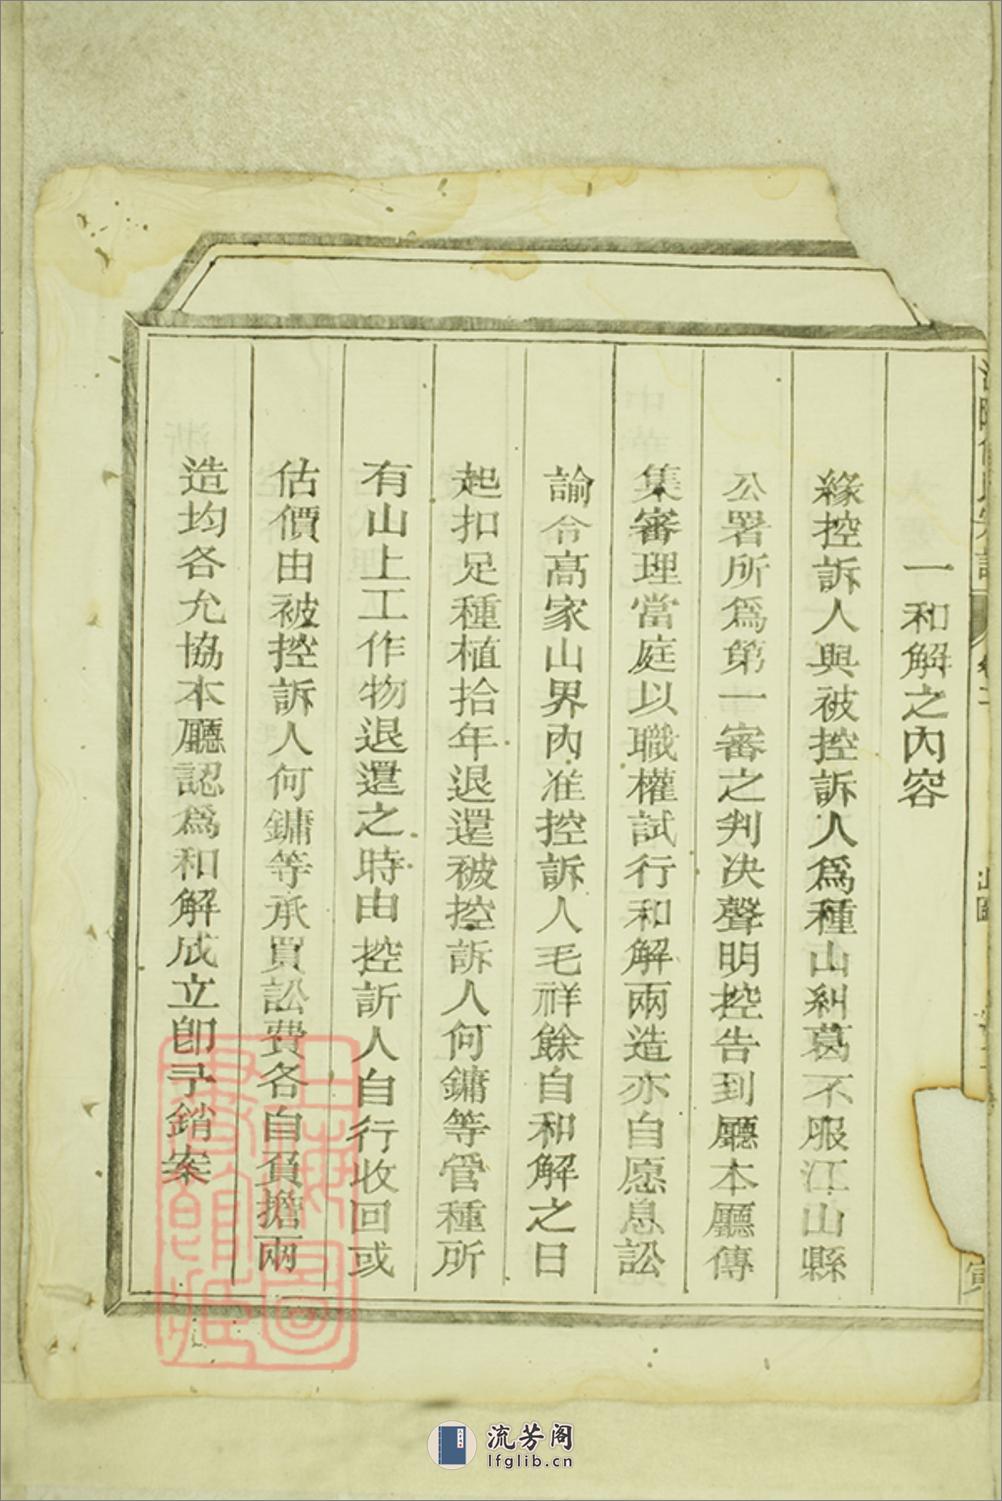 一和解之內容
緣控訴人與被控訴人爲種山糾葛不服江山縣
公署所爲第一審之判决聲明控告到廳本廳傳
集審理當庭以職權試行和解兩造亦自愿息訟
諭令高家山界內准控訴人毛祥餘自和解之日
起扣足種植拾年退還被控訴人何鏞等管種所
有山上工作物退還之時由控訴人自行收回或
估價由被控訴人何鏞等承買訟費各自負擔兩
造均各允協本廳認爲和解成立卽予銷案
上海圖書館藏
流芳阁
lfglib.cn